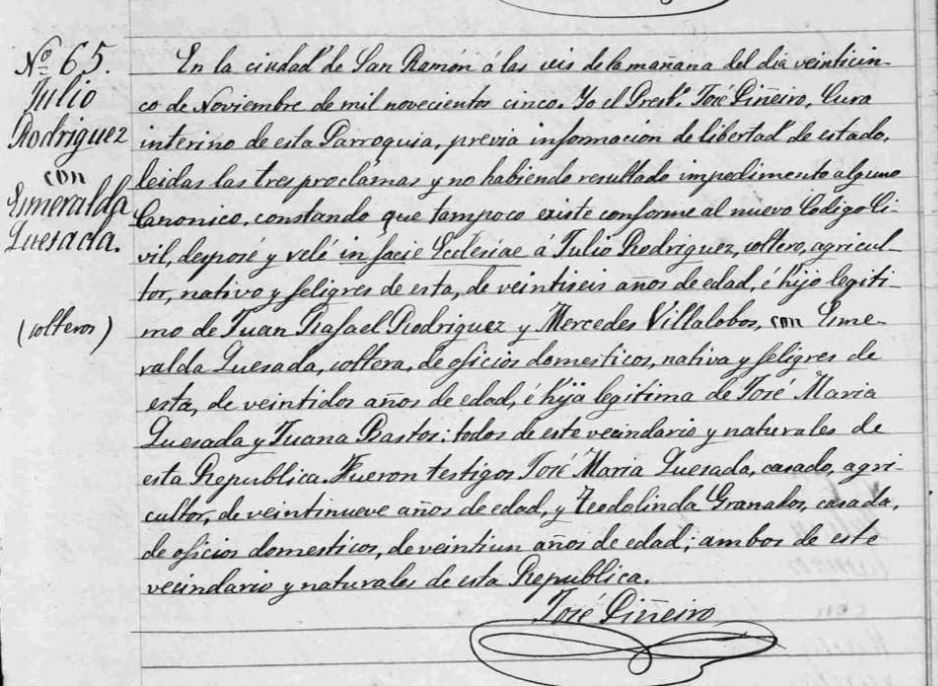 Nº 65.
Julio
Rodriguez
con
Esmeralda
Quesada.
(solteros)
En la ciudad de San Ramón á las seis de la mañana del dia veinticin-
co de Noviembre de mil novecientos cinco. Yo el Presb. José Piñeiro, Cura
interino de esta Parroquia, previa información de libertad de estado,
leidas las tres proclamas y no habiendo resultado impedimento alguno
Canonico, constando que tampoco existe conforme al nuevo Codigo Ci-
vil, desposé y velé in facie Ecclesiae á Julio Rodriguez, soltero, agricul-
tor, nativo y feligres de esta, de veintiseis años de edad, é hijo legiti-
mo de Juan Rafael Rodriguez y Mercedes Villalobos, con Esme-
ralda Quesada, soltera, de oficios domesticos, nativa y feligres de
esta, de veintidos años de edad, é hija legitima de José Maria
Quesada y Juana Bastos; todos de este vecindario y naturales de
esta Republica. Fueron testigos José Maria Quesada, casado, agri-
cultor, de veintinueve años de edad, y Teodolinda Granados, casada,
de oficios domesticos, de veintiun años de edad; ambos de este
vecindario y naturales de esta Republica.
José Piñeiro